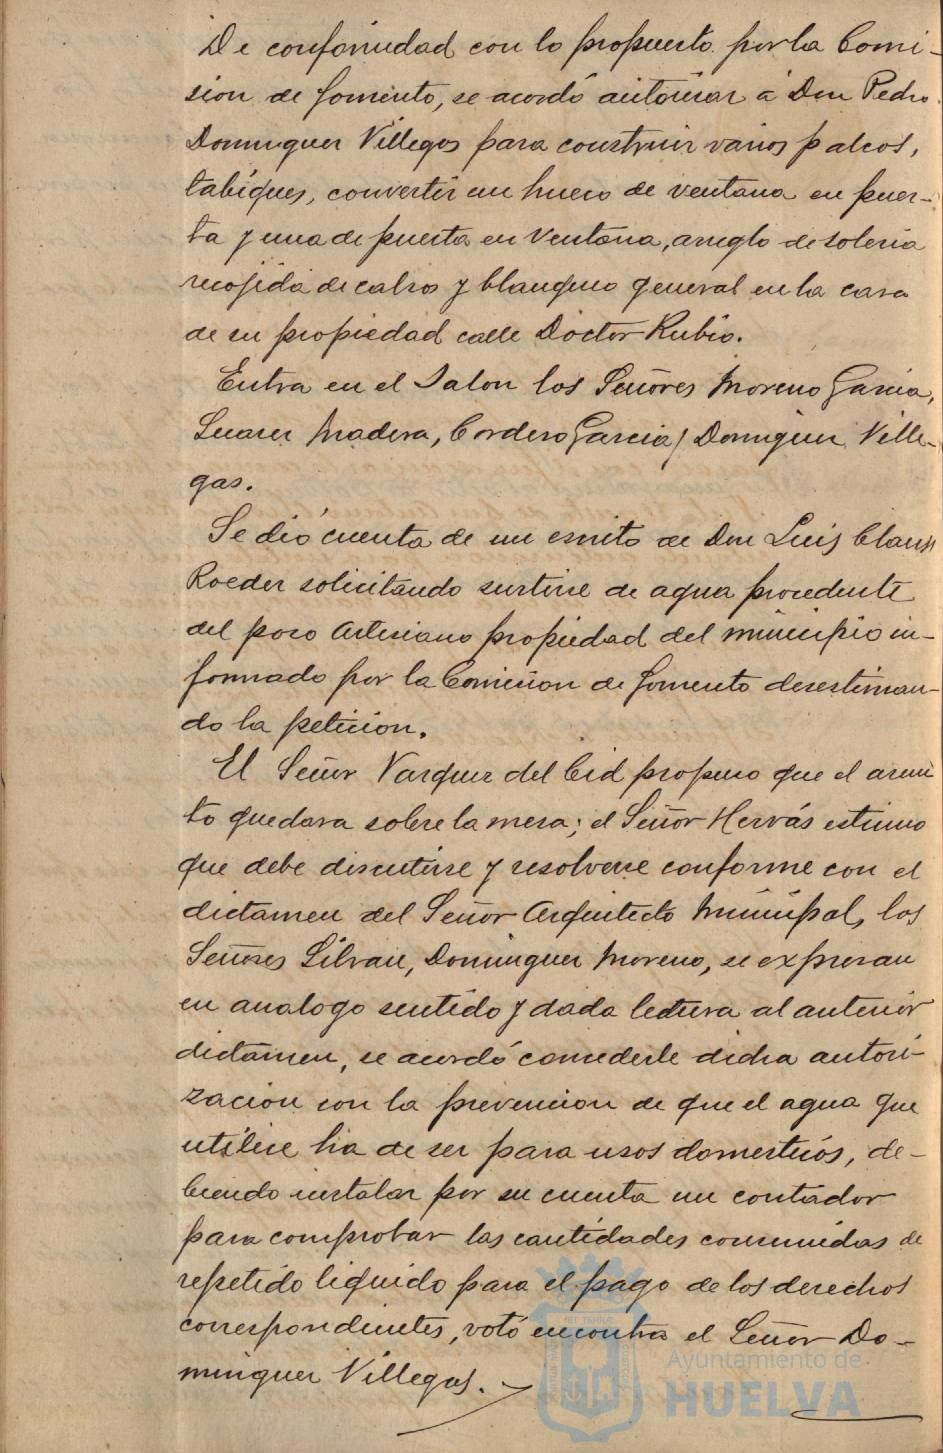 De conformidad con lo propuesto por la Comi-
sion de fomento, se acordó autorizar a Don Pedro
Dominguez Villegas para construir varios palcos,
tabiques, convertir un hueco de ventana en puer-
ta y una de puerta en Ventana, arreglo de soleria
recojida de calsos y blanqueo general en la casa
de su propiedad calle Doctor Rubio.
Entra en el Salon los Señores Moreno Garcia,
Suarez Madera, Cordero Garcia y Dominguez Ville-
gas.
Se dió cuenta de un escrito de Don Luis Clauss
Roeder solicitando surtirse de agua procedente
del pozo Artesiano propiedad del municipio in-
formado por la Comision de fomento desestiman-
do la peticion.
El Señor Vazquez del Cid propuso que el asun
to quedara sobre la mesa; el Señor Hervás estimo
que debe discutirse y resolverse conforme con el
dictamen del Señor Arquitecto Municipal, los
Señores Silvan, Dominguez Moreno, se expresan
en analogo sentido y dada lectura al anterior
dictamen, se acordó concederle dicha autori-
zacion con la prevencion de que el agua que
utilice ha de ser para usos domesticos, de-
biendo instalar por su cuenta un contador
para comprobar las cantidades consumidas de
repetido liquido para el pago de los derechos
correspondientes, votó encontra el Señor Do-
minguez Villegas.
Ayuntamiento de
HUELVA